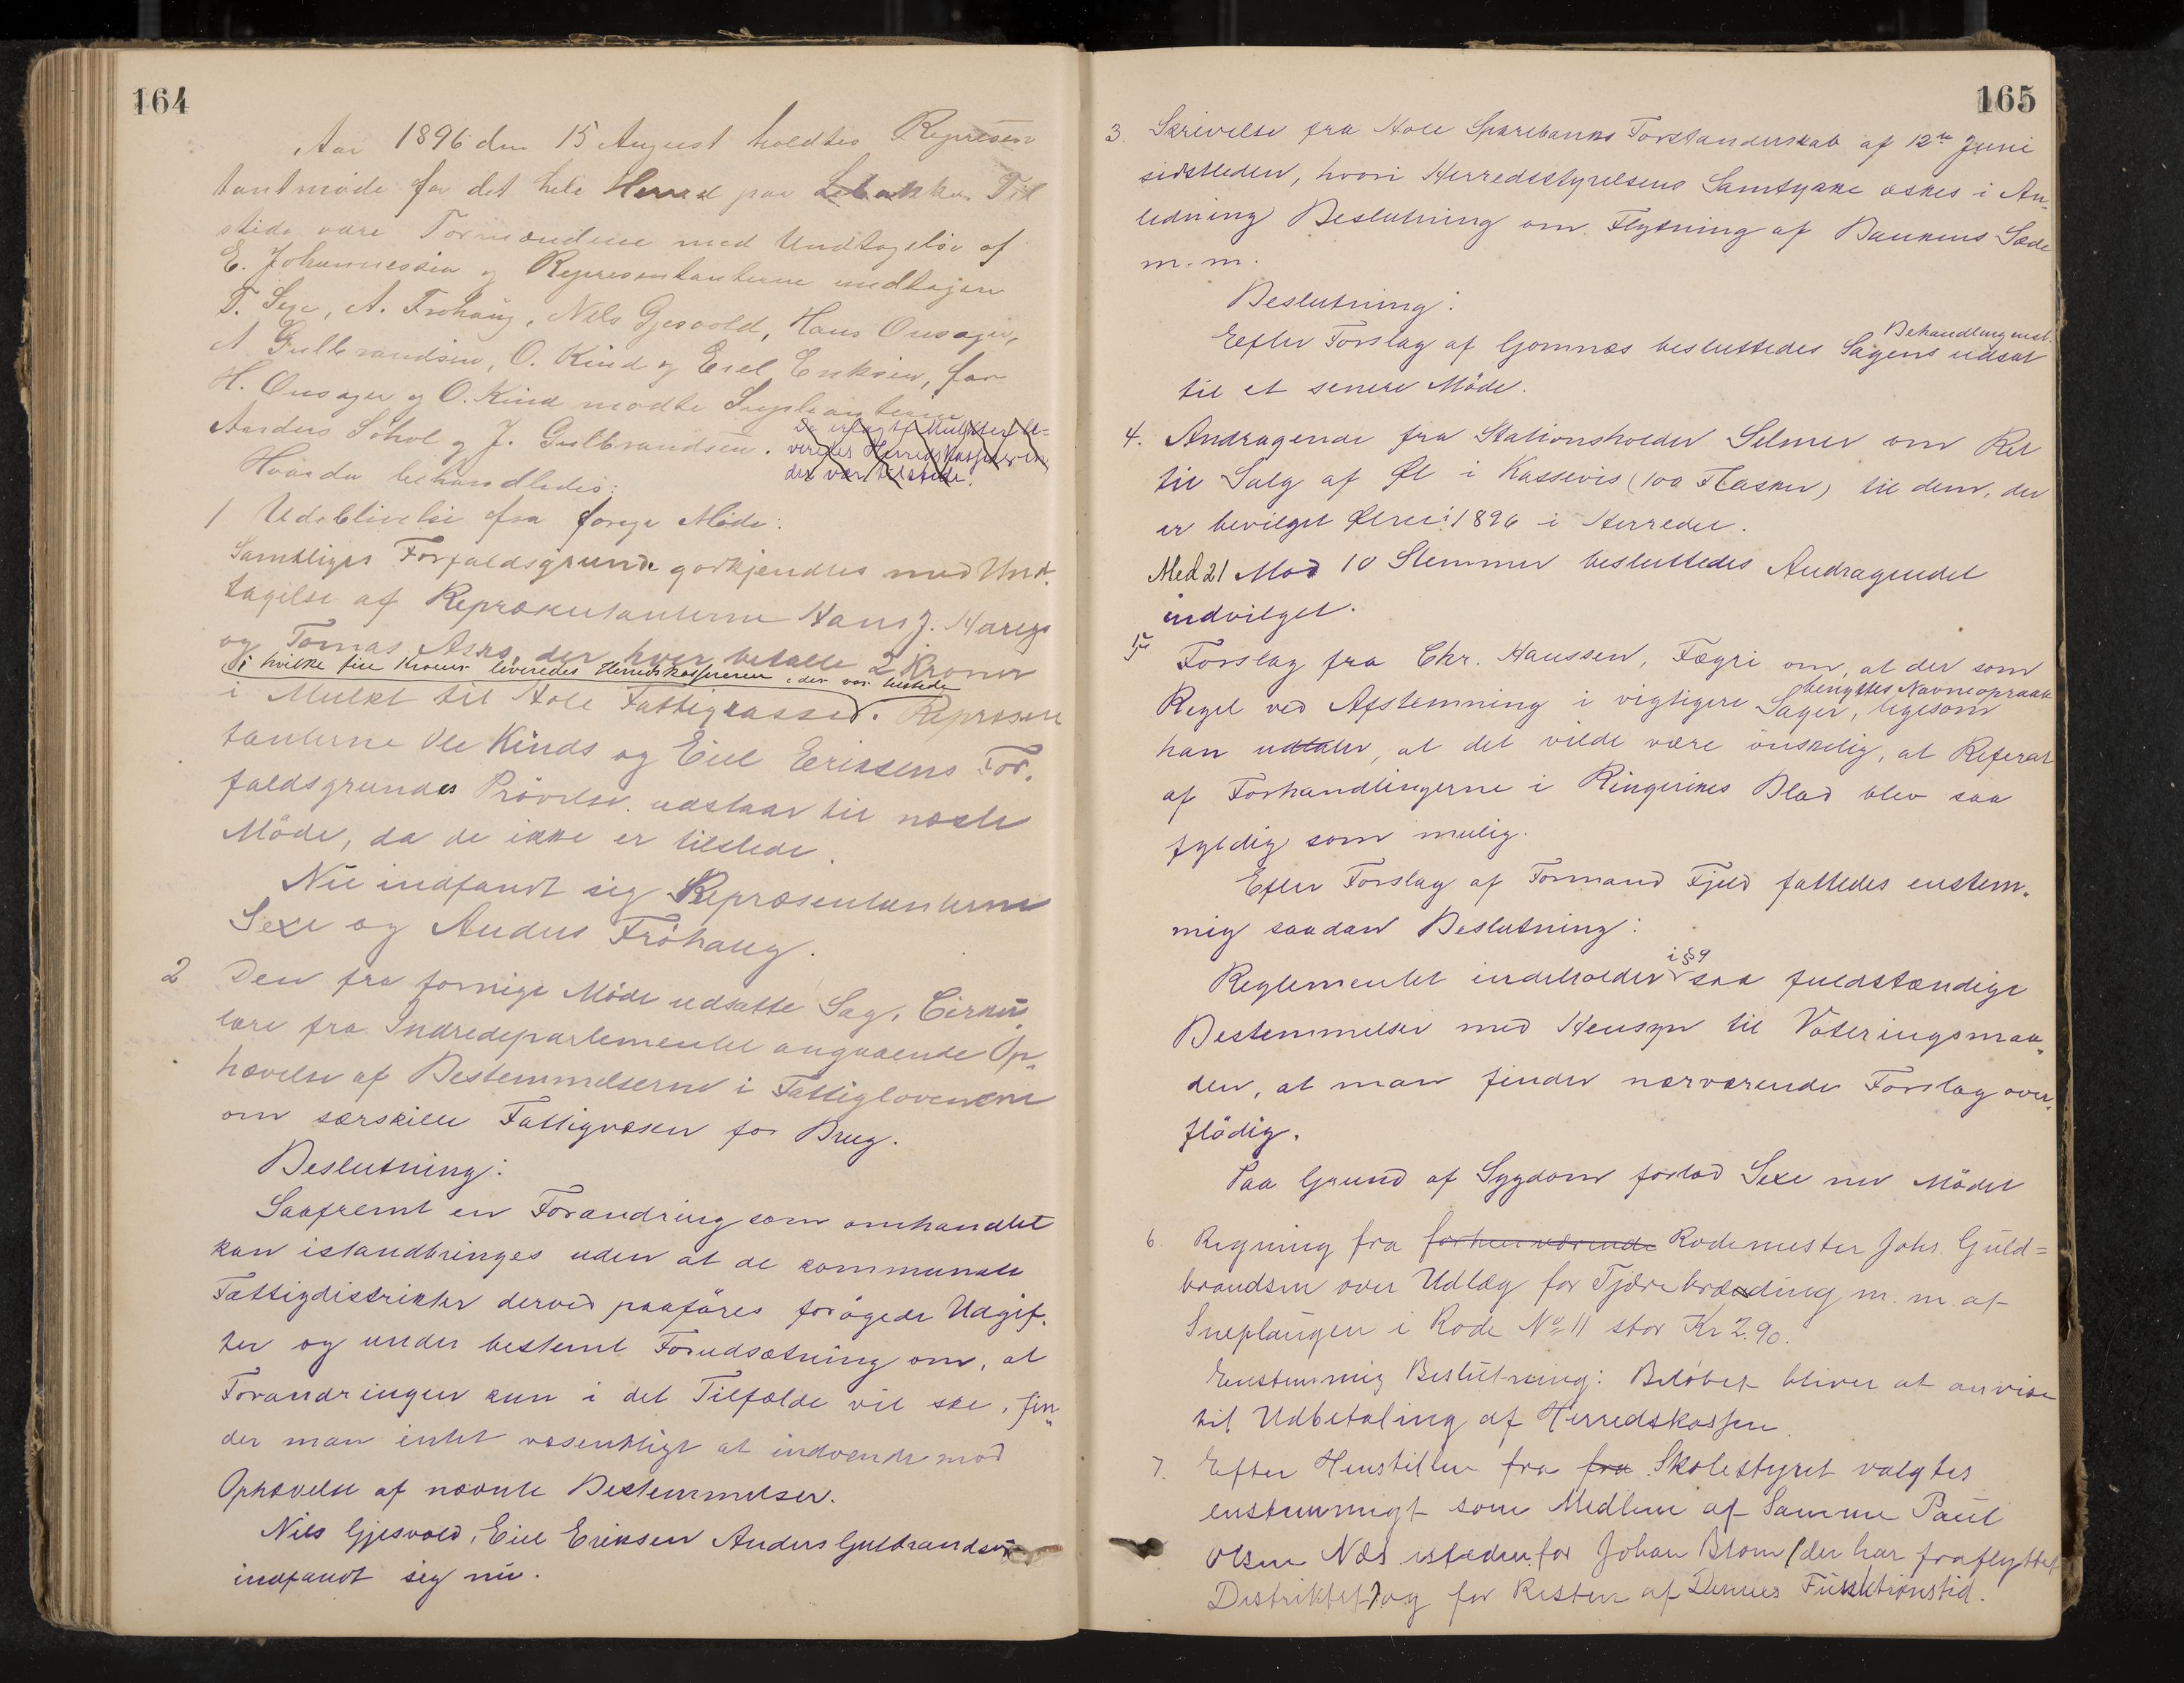 164
Aar 1896 den 15 August holdtes Represen
tantmøde for det hele Herred paa Libakke. Til
stede vare Formændene med Undtagelse af
E. Johannessen og Representanterne undtagen
T. Sexe, A. Frøhaug, Nels Gjesvold, Hans Onsager,
A Gulbrandsen, O. Kind og Eiel Eriksen, for
H. Onsager og O. Kind mødte Supleanterne
Anders Sohol og J. Gulbrandsen. De erlagte Mulkter le=
veredes Herredskassereren
der var tilstede.
Hvorda behandledes:
1 Udeblivelse fra forige Møde:
Samtliges Forfaldsgrunde godkjendtes med Und-
tagelse af Repræsentanterne Hans J. Hareg
og Tomas Asks, der hver betalte 2 Kroner
i hvilke fire Kroner leveredes Herredskassereren, der var tilstede
i Mulkt til Hole Fattigkasse. Repræsen
tanterne Ole Kinds og Eiel Eriksens For-
faldsgrundes Prövelse udstaar til næste
Möde, da de ikke er tilstede.
Nu indfandt sig Repræsentanterne
Sexe og Anders Fröhaug.
2 Den fra forrige Möde udsatte Sag, Cirku
lære fra Indredepartementet angaaende Op-
hævelse af Bestemmelserne i Fattiglovene
om særskilte Fattigvæsen for Brug.
Beslutning:
Saafremt en Forandring som omhandlet
kan istandbringes uden at de kommunale
Fattigdistrikter derved paaföres forögede Udgif-
ter og under bestemt Forudsætning om, at
Forandringen kun i det Tilfælde vil ske, fin-
der man intet væsentligt at indvende mod
Ophævelse af nævnte Bestemmelser.
Nils Gjesvold, Eiel Eriksen Anders Gulbrandsen
indfandt sig nu.
165
3. Skrivelse fra Hole Sparebanks Forstanderskab af 12te Juni
sidstleden, hvori Herredsstyrelsens Samtykke æskes i An-
ledning Beslutning om Flytning af Bankens Sæde
m.m.
Beslutning:
Efter Forslag af Gomnæs besluttedes Sagens Behandling udsat
til et senere Möde.
4. Andragende fra Stationsholder Selmer om Ret
til Salg af Øl i Kassevis (100 Flasker) til dem, der
er bevilget Ølret i 1896 i Herredet.
Med 21 Mod 10 Stemmer besluttedes Andragendet
indvilget.
5 Forslag fra Chr. Hanssen, Fægri om, at der som
Regel ved Afstemning i vigtigere Sager benyttes Navneopraab, ligesom
han udtaler, at det vilde være önskelig, at Referat
af Forhandlingerne i Ringerikes Blad blev saa
fyldig som mulig.
Efter Forslag af Formand Fjeld fattedes enstem-
mig saadan Beslutning:
Reglementet indeholder i § 9 saa fuldstændige
Bestemmelser med Hensyn til Voteringsmaa-
den, at man finder nærværende Forslag over-
flödig.
Paa Grund af Sygdom forlod Sexe nu Mödet
6. Regning fra forhenværende Rodemester Johs. Guld=
brandsen over Udlæg for Tjærebræding m.m. af
Sneplougen i Rode No 11 stor Kr 2.90.
Enstemmig Beslutning: Beløbet bliver at anvise
til Udbetaling af Herredskassen.
7. Efter Henstillen fra fra Skolestyret valgtes
enstemmigt som Medlem af Samme Paul
Olsen Næs istedenfor Johan Blom (der har fraflyttet
Distriktet) og for Resten af Dennes Funktionstid.